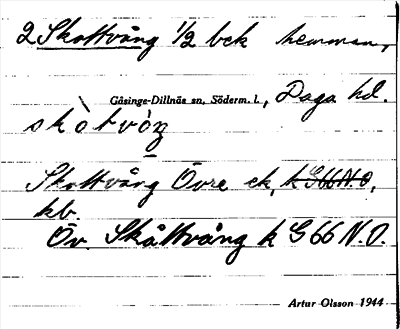 2 Skottvång 1/2 bck hemman,
Gåsinge-Dillnäs sn, Söderm. l., Daga hd.
skòtvòŋ
Skottvång Övre ek, k G66 N.O,
kb
Öv. Skåttvång k G 66 N.O.
Artur Olsson 1944